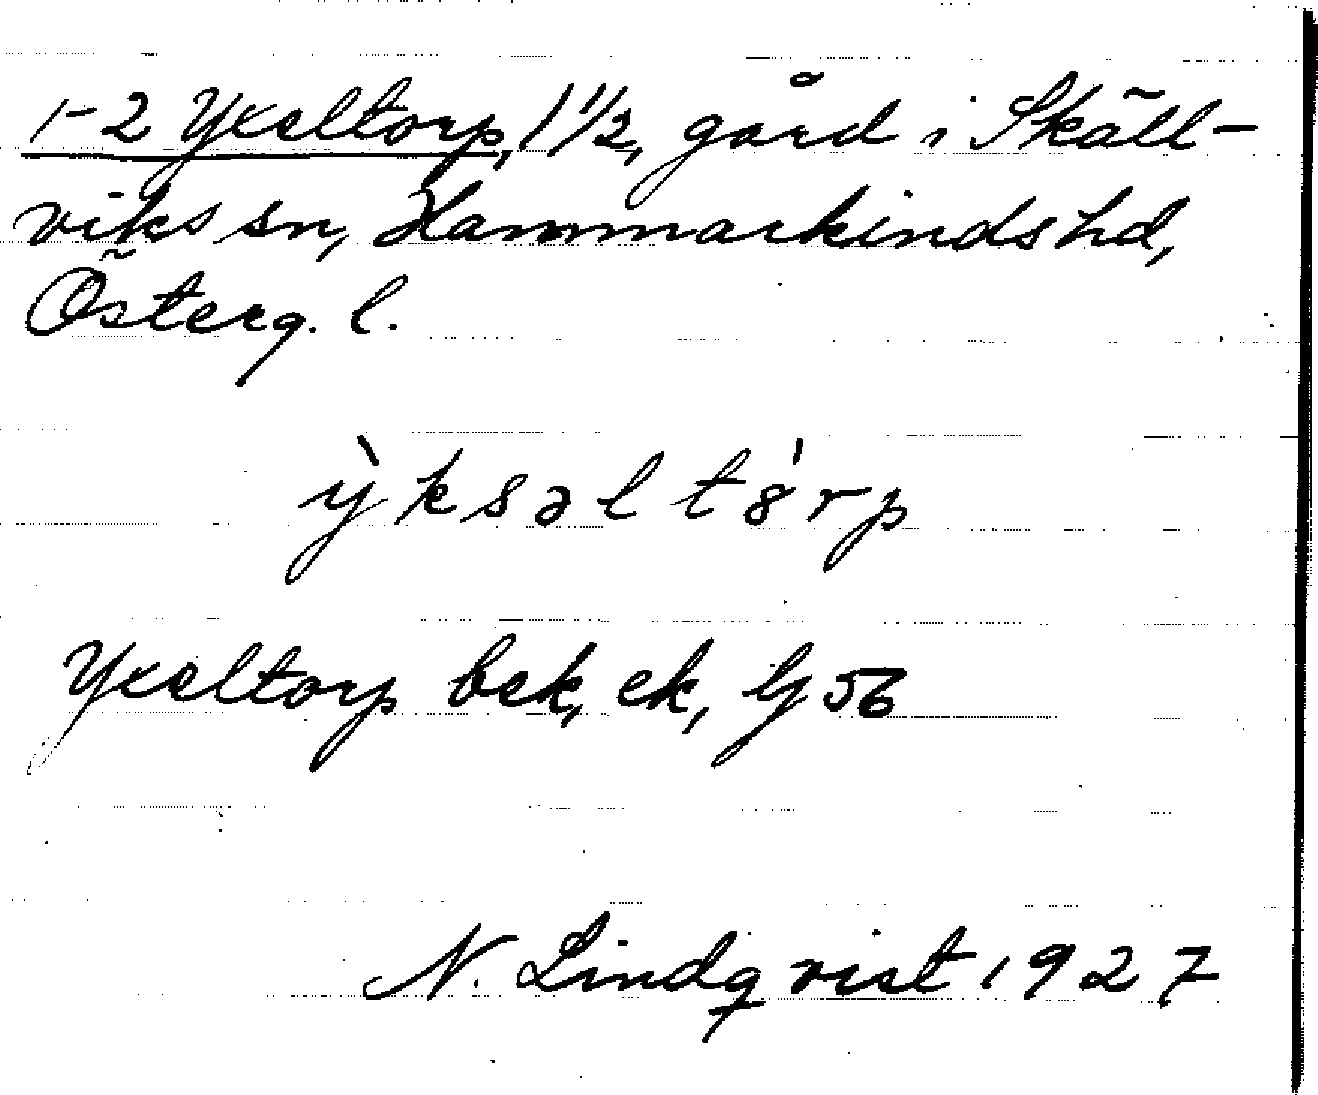 1-2 Yxeltorp, 1 1/2, gård i Skäll-
viks sn, Hammarkinds hd,
Österg. l.
ỳksəltȣ́rp
Yxeltorp bek, ek, Gj 56
N. Lindqvist 1927